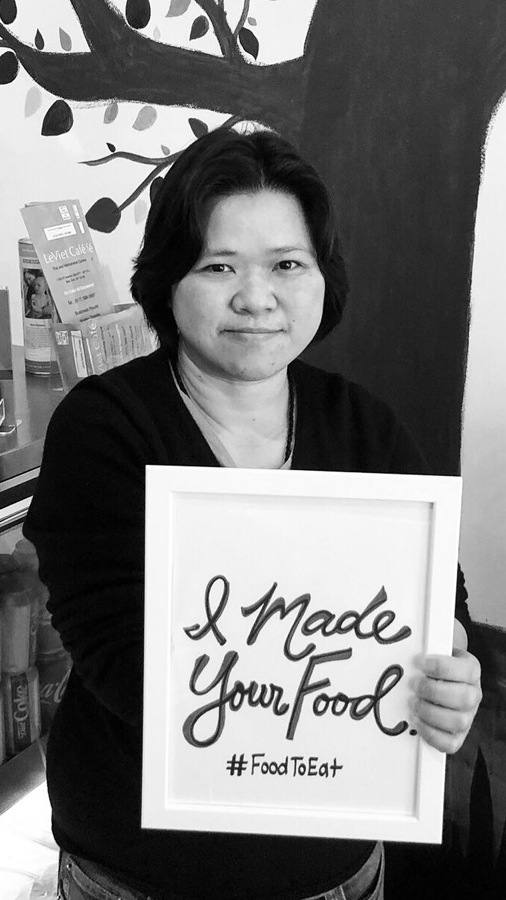 LeViet Café
I Made
Your Food.
#FoodToEat
Diet
Coke